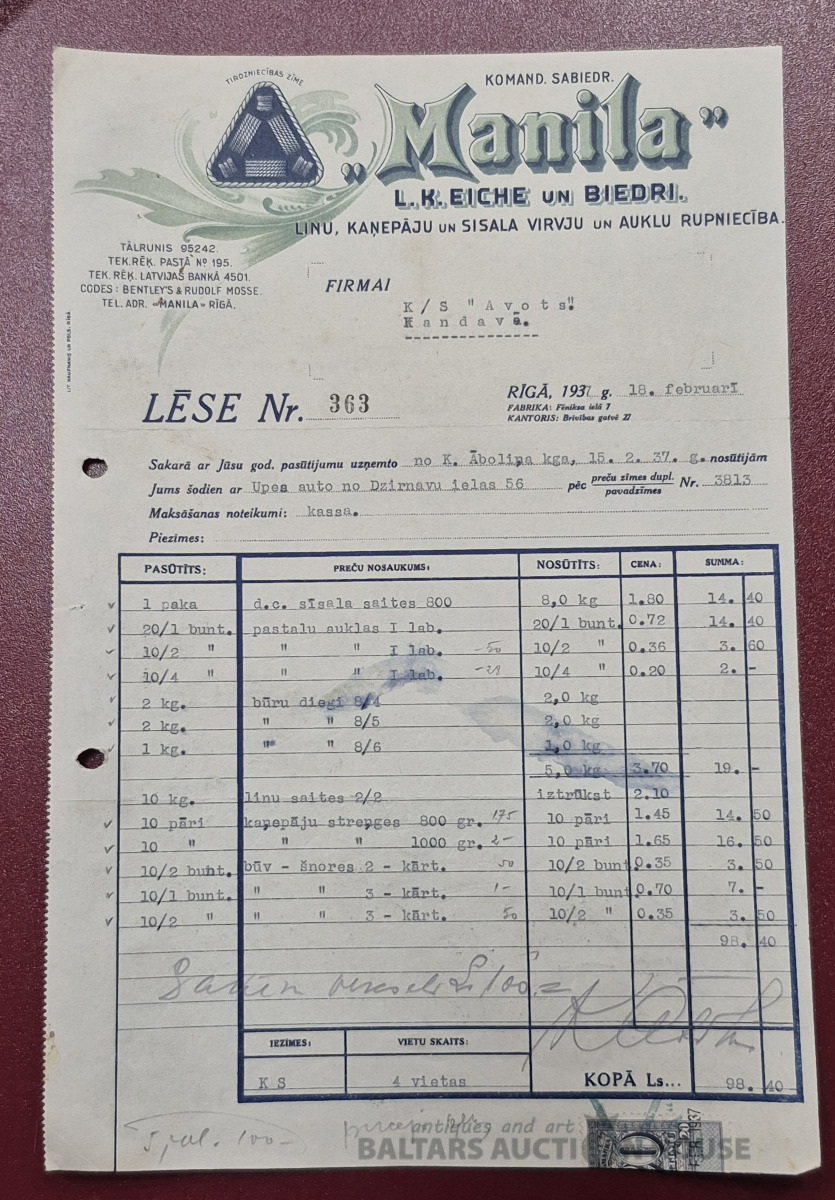 TIRDZNIECĪBAS ZĪME
KOMAND. SABIEDR.
„Manila”
L.K. EICHE UN BIEDRI.
LINU, KAŅEPĀJU UN SISALA VIRVJU UN AUKLU RUPNIECĪBA.
TĀLRUNIS 95242.
TEK. RĒĶ. PASTĀ Nº 195.
TEK. RĒĶ. LATVIJAS BANKĀ 4501.
CODES: BENTLEY'S & RUDOLF MOSSE.
TEL. ADR. «MANILA» RĪGĀ.
FIRMAI
K/S "Avots"
Kandavā.
LĒSE Nr. 363
RĪGĀ, 1937 g. 18. februarī
FABRIKA: Fēniksa ielā 7
KANTORIS: Brīvības gatvē 27
Sakarā ar Jūsu god. pasūtījumu uzņemto no K. Āboliņa kga, 15. 2. 37. g. nosūtījām
Jums šodien ar Upes auto no Dzirnavu ielas 56 pēc preču zīmes dupl. pavadzīmes Nr. 3813
Maksāšanas noteikumi: kassa.
Piezīmes:
PASŪTĪTS: PREČU NOSAUKUMS: NOSŪTĪTS: CENA: SUMMA:
1 paka d.c. sīsala saites 800 8,0 kg 1.80 14. 40
20/1 bunt. pastalu auklas I lab. 20/1 bunt. 0.72 14. 40
10/2 " " " I lab. -50 10/2 " 0.36 3. 60
10/4 " " " I lab. 10/4 " 0.20 2. -
2 kg. būru diegi 8/4 2,0 kg
2 kg. " " 8/5 2,0 kg
1 kg. " " 8/6 1,0 kg
5,0 kg 3.70 19. -
10 kg. linu saites 2/2 iztrūkst 2.10
10 pāri kaņepāju streņges 800 gr. 175 10 pāri 1.45 14. 50
10 " " " 1000 gr. 2- 10 pāri 1.65 16. 50
10/2 bunt. būv - šnores 2 - kārt. 50 10/2 bunt 0.35 3. 50
10/1 bunt. " " 3 - kārt. 1- 10/1 bunt 0.70 7. -
10/2 " " " 3 - kārt. 50 10/2 " 0.35 3. 50
98. 40
Ls 100.=
IEZĪMES: VIETU SKAITS:
K S 4 vietas KOPĀ Ls... 98. 40
100-
antiques and art
BALTARS AUCTION HOUSE
20
FEB 1937